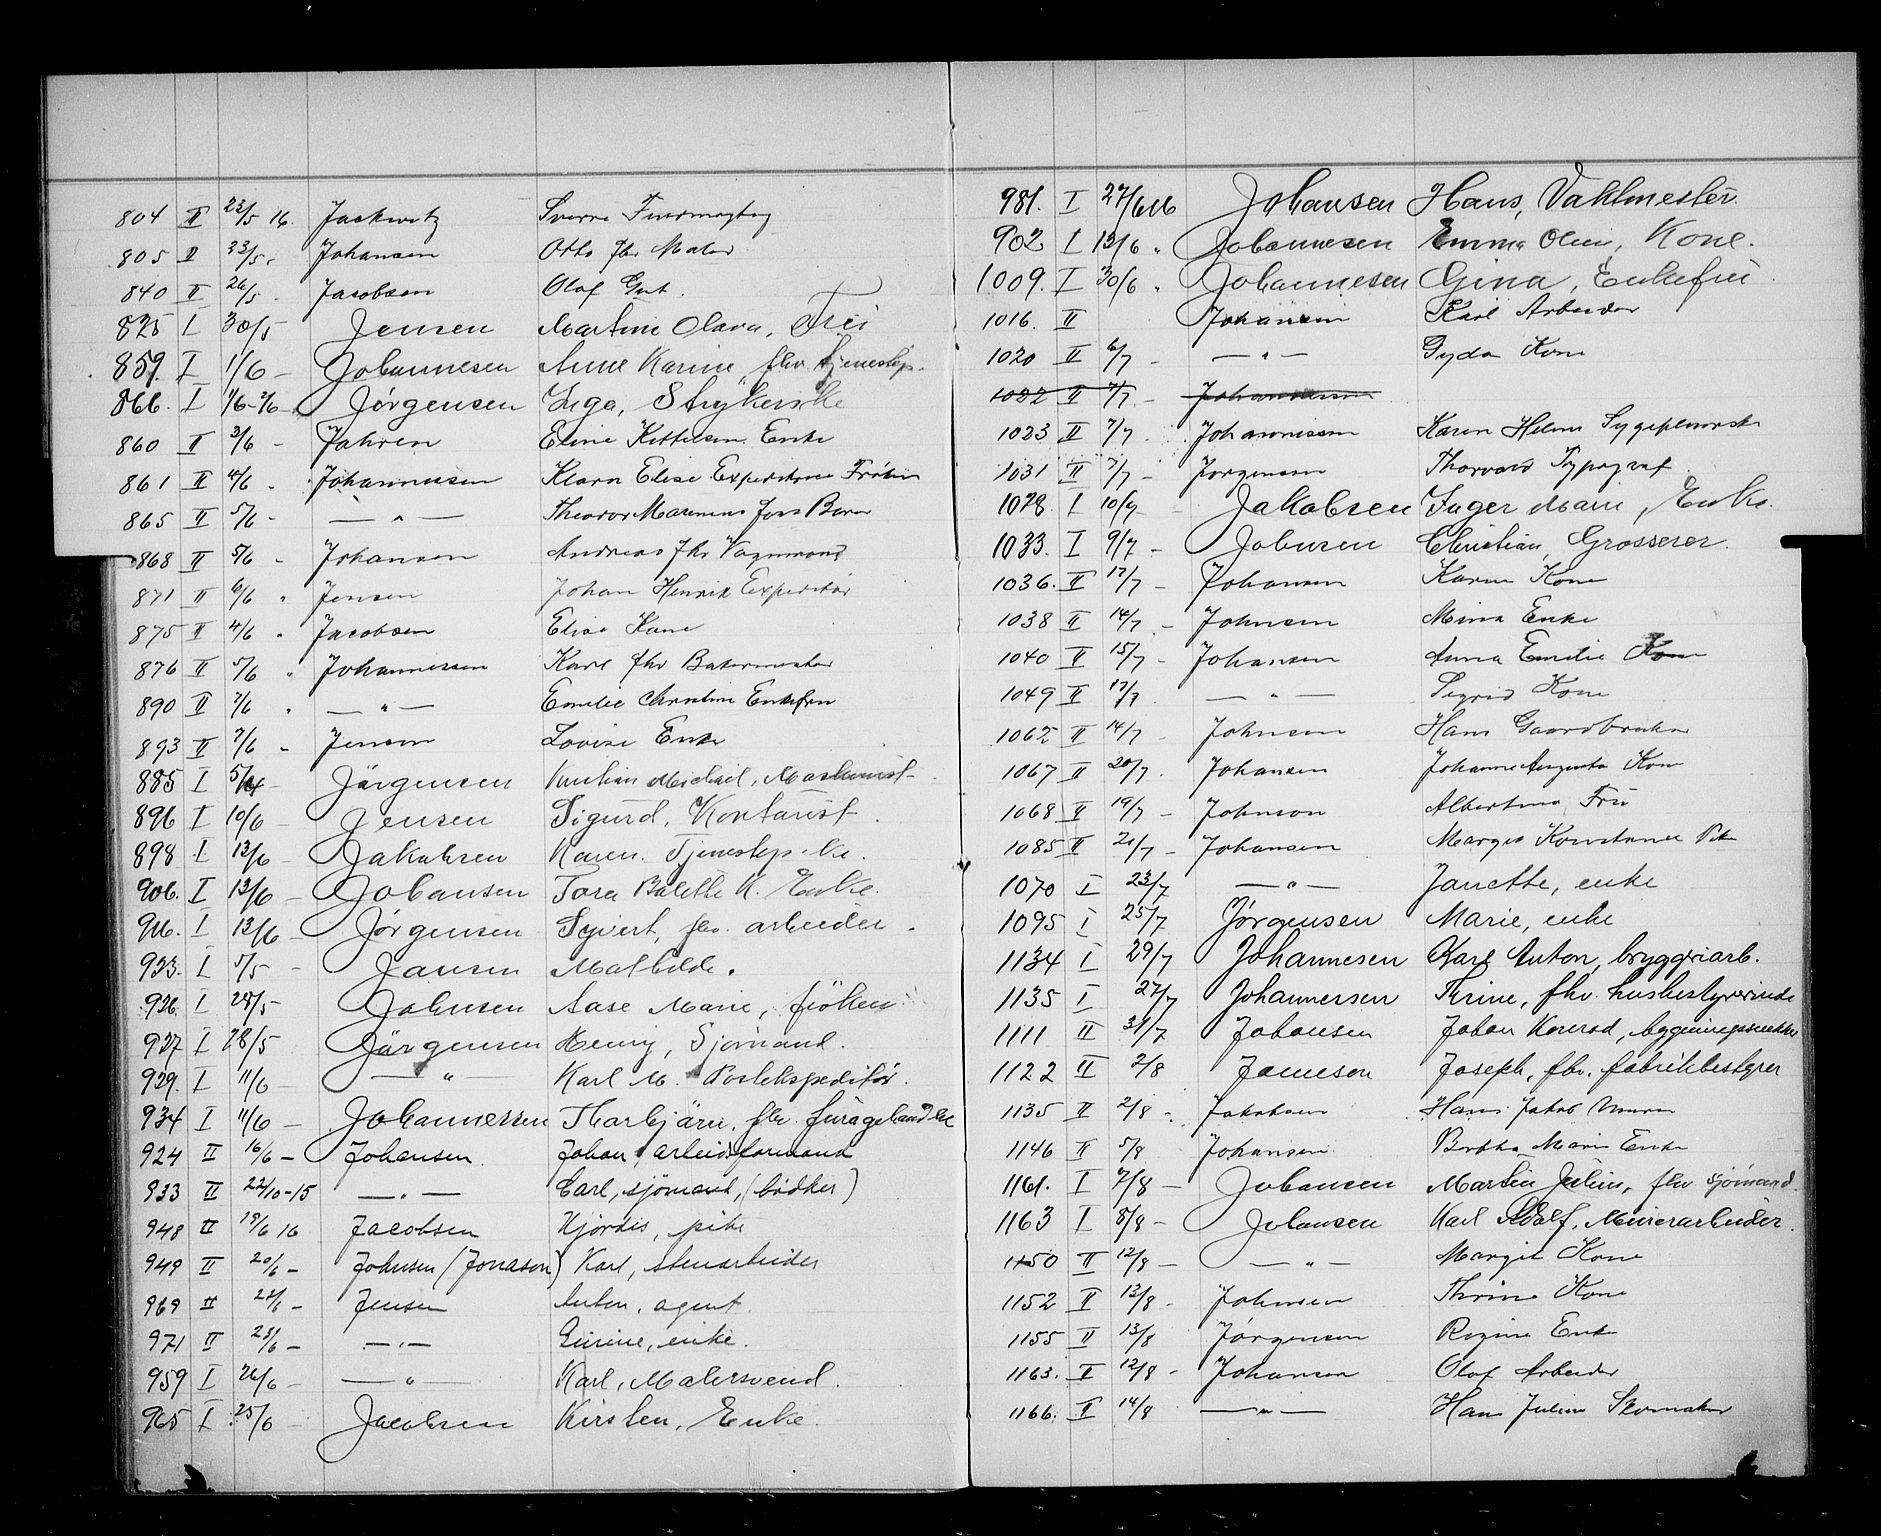 804 II 23/5 16. Jackwitz Sverre
805 II 23/5 „ Johansen Otto fhv Maler
840 II 26/5 - Jacobsen Olaf Gut.
825 I 30/5 Jensen Martine Olava, Frü
859. I 1/6 - Johannesen Anne Karine fhv. tjenestep.
866. I 1/6-2/6 - Jørgensen Inga, Strÿkerske
860 II 3/6 - Jahren Eline Kittilsen Enke
861 II 4/6 - Johannesen Klara Elise Expeditrice Frøken
865 II 5/6 - — „ — Theodor Marenius
868 II 5/6 - Johansen Andreas fhv Vognmand
871 II 6/6 „ Jensen Johan Henrik Expeditør
875 II 4/6 „ Jacobsen Elise Kone
876 II 5/6 „ Johannessen Karl fhv Bakermester
890 II 7/6 „ — „ — Emilie Christine Enkefru
893 II 7/6 „ Jensen Lovise Enke
885 I 5/6 - Jörgensen Kristian Michael, Maskinist
896 I 10/6 - Jensen Sigurd, Kontorist.
898 I 13/6 - Jakobsen Karen. Tjenestep.
906. I 13/6 - Johansen Tora Bolette K. Enke.
916. I 13/6 - Jørgensen Syvert, fhv. arbeider.
923. I 5/5 - Jansen Mathilde.
926. I 28/5 Johnsen Aase Marie, fröken
927 I 28/5 Jörgensen Henry, Sjömand.
929. I 11/6 - — „ — Karl M. Postekspeditör.
934 I 11/6 - Johannessen Thorbjörn, fhv. furagehandler
924 II 16/6 - Johansen. Johan, arbeidsformand
933 II 22/10-15 — „ — Carl, sjömand, (bödker)
948 II 19/6 16 Jacobsen Hjördis, pike
949 II 20/6 - Johnsen (Jonason) Karl, stenarbeider
969 II 22/6 - Jensen Anton, agent.
971 II 23/6 - — „ — Gurine, enke.
959 I 26/6 - — „ — Karl, Malersvend.
965 I 25/6 Jacobsen Kirsten, Enke.
981. I 27/6 16 Johansen Hans, Vaktmester.
902 I 13/6 „ Johannesen Emma Oline, Kone.
1009. I 30/6 „ Johannesen Gina, Enkefrü
1016. II Johansen Karl Arbeider
1020 II 6/7 - — „ — Gyda Kone
1022 II 7/7 - Johannesen
1023 II 7/7 . Johannesen Karen Helene Sygepleierske
1031 II 7/7 - Jørgensen Thorvald Typograf.
1028. I 10/7 - Jakobsen Inger Marie, Enke.
1033. I 9/7 - Johnsen Christian, Grosserer.
1036. II 17/7 - Johansen Karen Kone
1038 II 14/7 - Johnsen Mina Enke
1040 II 15/7 - Johansen Anna Emilie Kone
1049 II 17/7 — „ — Sigrid Kone
1062 II 14/7 - Johnsen Hans Gaardbruker
1067 II 20/7 . Johansen Johanne Augusta Kone
1068 II 19/7 - Johnson Albertina Frü
1085 II 21/7 - Johansen Margit Konstance Pike
1070 I 23/7 — „ — Janette, enke
1095 I 25/7 Jørgensen Marie, enke
1134 I 29/7 Johannesen Karl Anton, bryggeriarb.
1135 I 27/7 Johannersen Trine, fhv. husbestyrerinde
1111 II 31/7 Johansen Johan Konrad, bygningssnekker
1122 II 2/8 Jameson Joseph, fhv. fabrikbestyrer
1135 II 2/8 - Jakobsen Hans Jakob
1146 II 5/8 Johansen Marie Enke
1161. I 7/8 - Johansen Martin Julius, fhv sjömand.
1163 I 8/8 - Johansen Karl Adolf, Murerarbeider.
1150 II 12/8 - — „ — Margit Kone
1152 II 13/8 - Johnsen Thrine Kone
1155 II 13/8 Jørgensen Regine Enke
1163. II 12/8 - Johansen Olaf Arbeider
1166. II 14/8 — „ — Hans Julius Skomaker